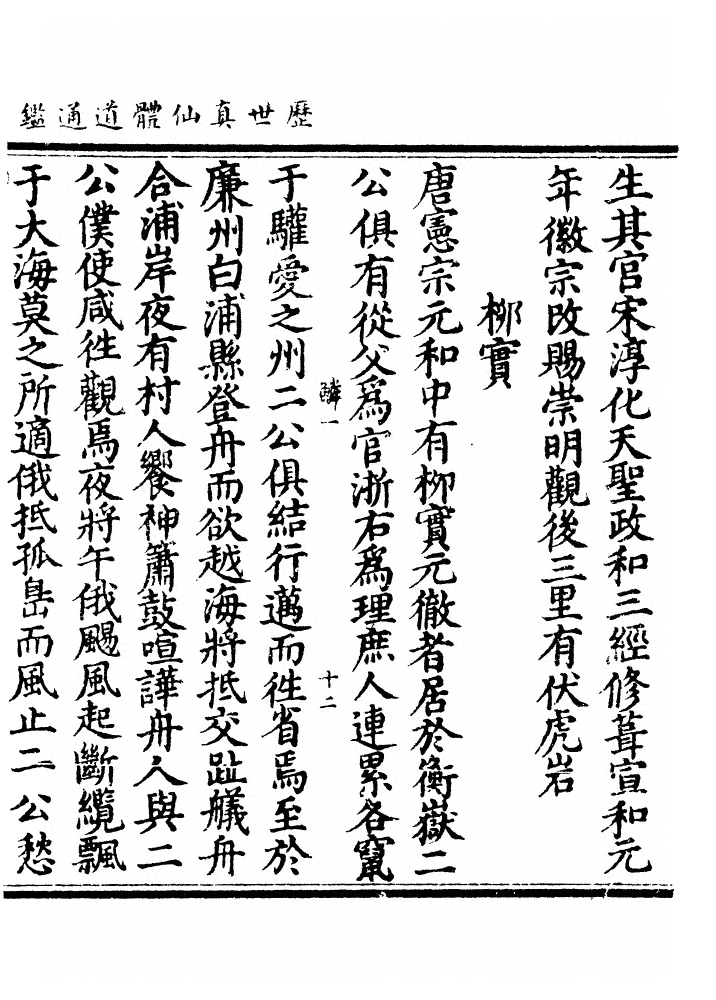 歷世真仙體道通鑑
生其官宋淳化天聖政和三經修葺宣和元
年徽宗改賜崇明觀後三里有伏虎岩
栁實
唐憲宗元和中有栁實元徹者居於衡嶽二
公俱有從父爲官浙右爲理庶人連累各竄
麟一
十二
于驩愛之州二公俱結行邁而徃省焉至於
廉州白浦縣登舟而欲越海將抵交趾艤舟
合浦岸夜有村人饗神簫鼓喧譁舟人與二
公僕使咸徃觀焉夜將午俄颺風起斷纜飄
于大海莫之所適俄抵孤㠀而風止二公愁